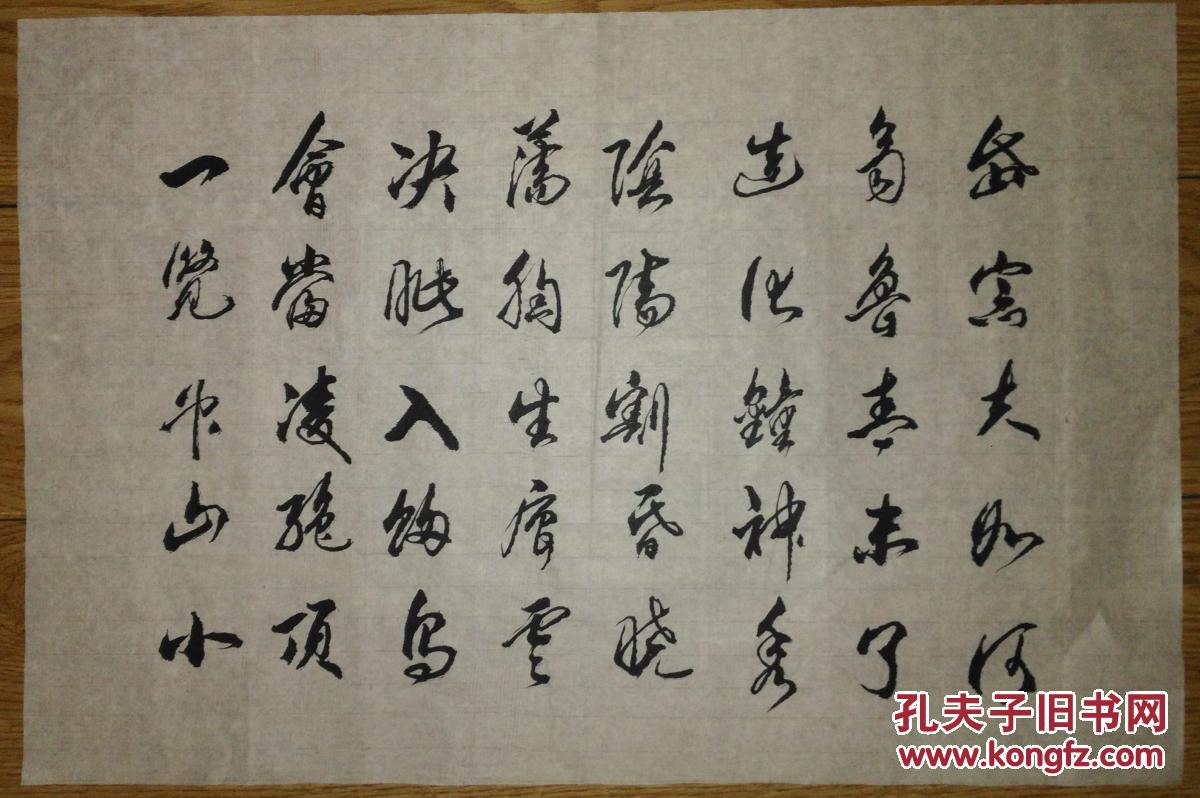 岱宗夫如何
齊魯青未了
造化鐘神秀
陰陽割昏曉
蕩胸生層雲
决眦入歸鳥
會當凌絕頂
一覽眾山小
孔夫子旧书网
www.kongfz.com